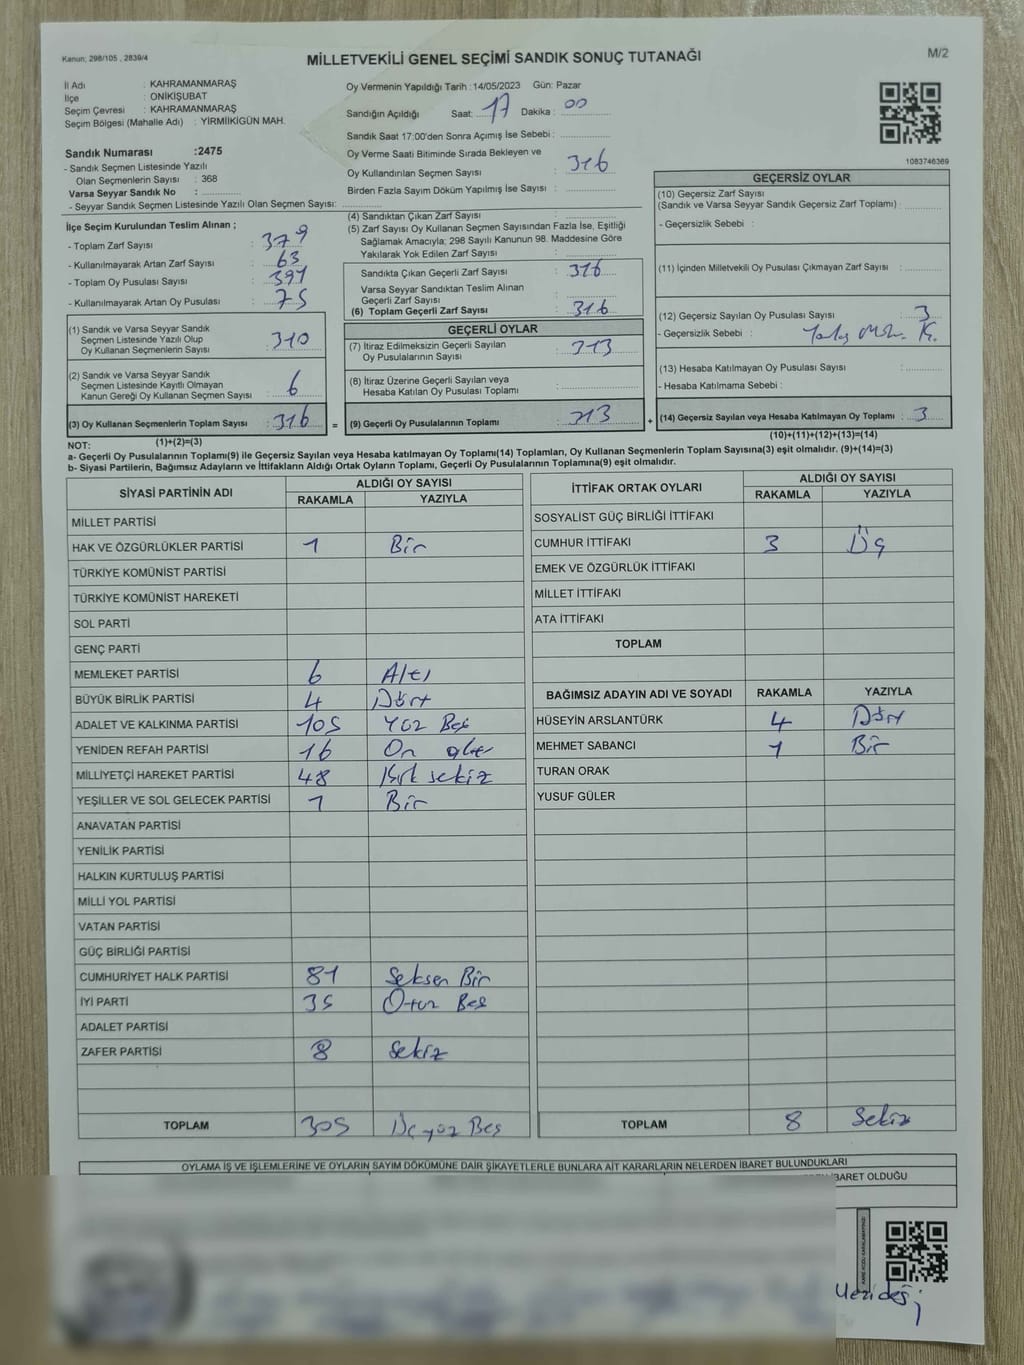 Kanun; 298/105 , 2839/4
MİLLETVEKİLİ GENEL SEÇİMİ SANDIK SONUÇ TUTANAĞI
M/2
İl Adı : KAHRAMANMARAŞ
İlçe : ONİKİŞUBAT
Seçim Çevresi : KAHRAMANMARAŞ
Seçim Bölgesi (Mahalle Adı) : YİRMİİKİGÜN MAH.
Sandık Numarası :2475
- Sandık Seçmen Listesinde Yazılı
Olan Seçmenlerin Sayısı : 368
Varsa Seyyar Sandık No :
- Seyyar Sandık Seçmen Listesinde Yazılı Olan Seçmen Sayısı:
Oy Vermenin Yapıldığı Tarih :14/05/2023 Gün: Pazar
Sandığın Açıldığı Saat: 17 Dakika : 00
Sandık Saat 17:00'den Sonra Açımış İse Sebebi :
Oy Verme Saati Bitiminde Sırada Bekleyen ve
Oy Kullandırılan Seçmen Sayısı : 316
Birden Fazla Sayım Döküm Yapılmış İse Sayısı :
1083746369
İlçe Seçim Kurulundan Teslim Alınan ;
- Toplam Zarf Sayısı : 379
- Kullanılmayarak Artan Zarf Sayısı : 63
- Toplam Oy Pusulası Sayısı : 391
- Kullanılmayarak Artan Oy Pusulası : 75
(1) Sandık ve Varsa Seyyar Sandık
Seçmen Listesinde Yazılı Olup
Oy Kullanan Seçmenlerin Sayısı : 310
(2) Sandık ve Varsa Seyyar Sandık
Seçmen Listesinde Kayıtlı Olmayan
Kanun Gereği Oy Kullanan Seçmen Sayısı : 6
(3) Oy Kullanan Seçmenlerin Toplam Sayısı : 316
(1)+(2)=(3)
(4) Sandıktan Çıkan Zarf Sayısı :
(5) Zarf Sayısı Oy Kullanan Seçmen Sayısından Fazla İse, Eşitliği
Sağlamak Amacıyla; 298 Sayılı Kanunun 98. Maddesine Göre
Yakılarak Yok Edilen Zarf Sayısı :
Sandıkta Çıkan Geçerli Zarf Sayısı : 316
Varsa Seyyar Sandıktan Teslim Alınan
Geçerli Zarf Sayısı :
(6) Toplam Geçerli Zarf Sayısı : 316
=
GEÇERLİ OYLAR
(7) İtiraz Edilmeksizin Geçerli Sayılan
Oy Pusulalarının Sayısı : 313
(8) İtiraz Üzerine Geçerli Sayılan veya
Hesaba Katılan Oy Pusulası Toplamı :
(9) Geçerli Oy Pusulalarının Toplamı : 313
+
GEÇERSİZ OYLAR
(10) Geçersiz Zarf Sayısı
(Sandık ve Varsa Seyyar Sandık Geçersiz Zarf Toplamı) :
- Geçersizlik Sebebi :
(11) İçinden Milletvekili Oy Pusulası Çıkmayan Zarf Sayısı :
(12) Geçersiz Sayılan Oy Pusulası Sayısı : 3
- Geçersizlik Sebebi :
(13) Hesaba Katılmayan Oy Pusulası Sayısı :
- Hesaba Katılmama Sebebi :
(14) Geçersiz Sayılan veya Hesaba Katılmayan Oy Toplamı : 3
(10)+(11)+(12)+(13)=(14)
NOT:
a- Geçerli Oy Pusulalarının Toplamı(9) ile Geçersiz Sayılan veya Hesaba katılmayan Oy Toplamı(14) Toplamları, Oy Kullanan Seçmenlerin Toplam Sayısına(3) eşit olmalıdır. (9)+(14)=(3)
b- Siyasi Partilerin, Bağımsız Adayların ve İttifakların Aldığı Ortak Oyların Toplamı, Geçerli Oy Pusulalarının Toplamına(9) eşit olmalıdır.
SİYASİ PARTİNİN ADI ALDIĞI OY SAYISI
RAKAMLA YAZIYLA
MİLLET PARTİSİ
HAK VE ÖZGÜRLÜKLER PARTİSİ 1 Bir
TÜRKİYE KOMÜNİST PARTİSİ
TÜRKİYE KOMÜNİST HAREKETİ
SOL PARTİ
GENÇ PARTİ
MEMLEKET PARTİSİ 6 Altı
BÜYÜK BİRLİK PARTİSİ 4 Dört
ADALET VE KALKINMA PARTİSİ 105 Yüz Beş
YENİDEN REFAH PARTİSİ 16 On altı
MİLLİYETÇİ HAREKET PARTİSİ 48 Kırk sekiz
YEŞİLLER VE SOL GELECEK PARTİSİ 1 Bir
ANAVATAN PARTİSİ
YENİLİK PARTİSİ
HALKIN KURTULUŞ PARTİSİ
MİLLİ YOL PARTİSİ
VATAN PARTİSİ
GÜÇ BİRLİĞİ PARTİSİ
CUMHURİYET HALK PARTİSİ 81 Seksen Bir
İYİ PARTİ 35 Otuz Beş
ADALET PARTİSİ
ZAFER PARTİSİ 8 Sekiz
TOPLAM 305 Üçyüz Beş
İTTİFAK ORTAK OYLARI ALDIĞI OY SAYISI
RAKAMLA YAZIYLA
SOSYALİST GÜÇ BİRLİĞİ İTTİFAKI
CUMHUR İTTİFAKI 3 Üç
EMEK VE ÖZGÜRLÜK İTTİFAKI
MİLLET İTTİFAKI
ATA İTTİFAKI
TOPLAM
BAĞIMSIZ ADAYIN ADI VE SOYADI RAKAMLA YAZIYLA
HÜSEYİN ARSLANTÜRK 4 Dört
MEHMET SABANCI 1 Bir
TURAN ORAK
YUSUF GÜLER
TOPLAM 8 Sekiz
OYLAMA İŞ VE İŞLEMLERİNE VE OYLARIN SAYIM DÖKÜMÜNE DAİR ŞİKAYETLERLE BUNLARA AİT KARARLARIN NELERDEN İBARET BULUNDUKLARI
İBARET OLDUĞU